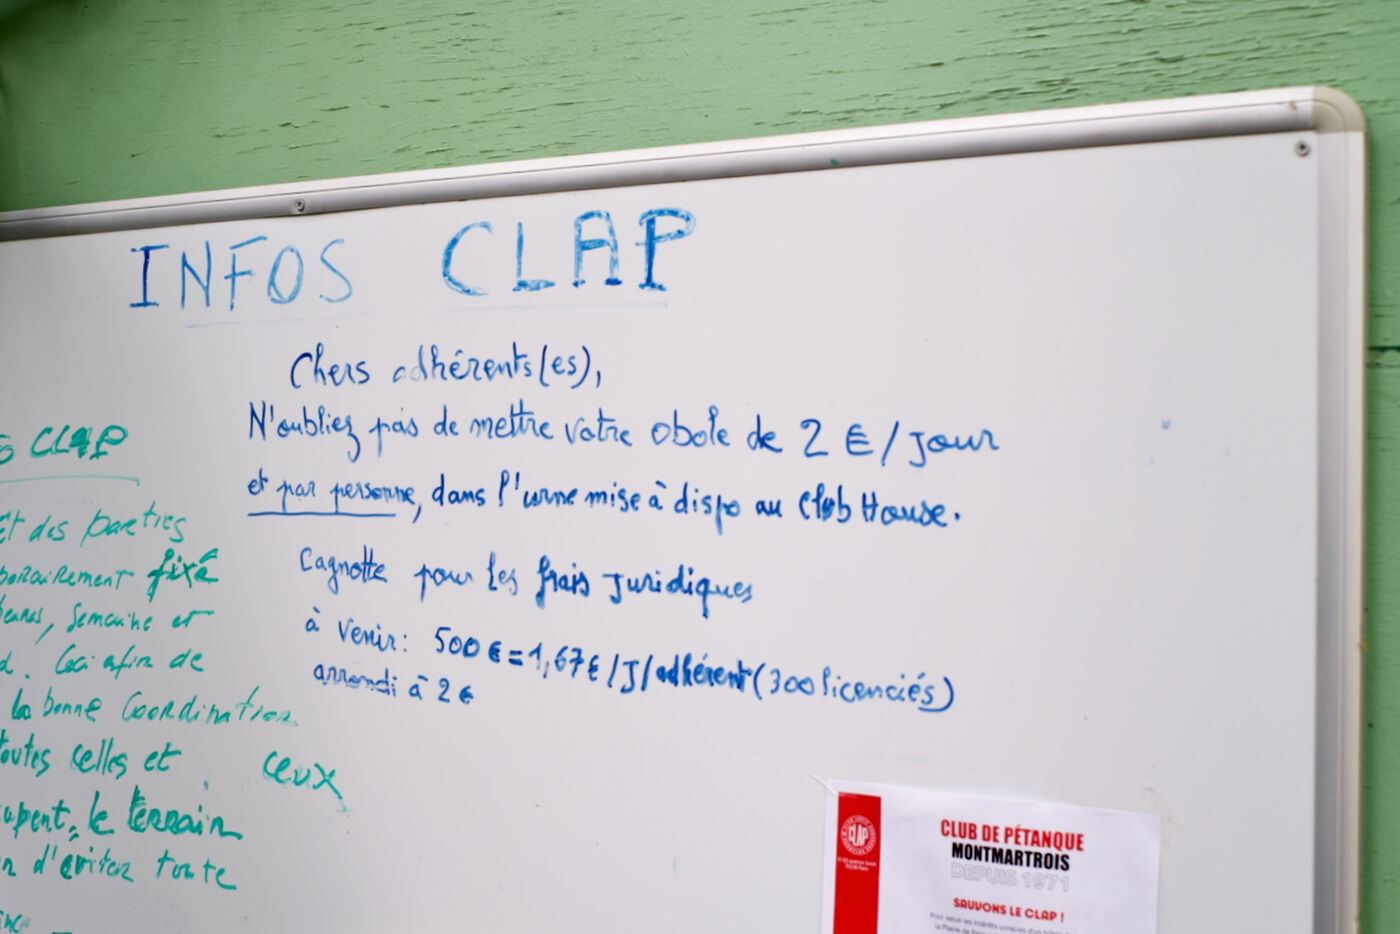 INFOS CLAP
Chers adhérents(es),
N'oubliez pas de mettre votre obole de 2 € / Jour
et par personne, dans l'urne mise à dispo au Club House.
Cagnotte pour les frais Juridiques
à venir: 500 € = 1,67 € / J / adhérent (300 licenciés)
arrondi à 2 €
CLAP
et des parties
fixé
semaine et
Ceci afin de
la bonne Coordination
toutes celles et ceux
le terrain
d'éviter toute
CLAP
CLUB DE PÉTANQUE
MONTMARTROIS
DEPUIS 1971
SAUVONS LE CLAP !